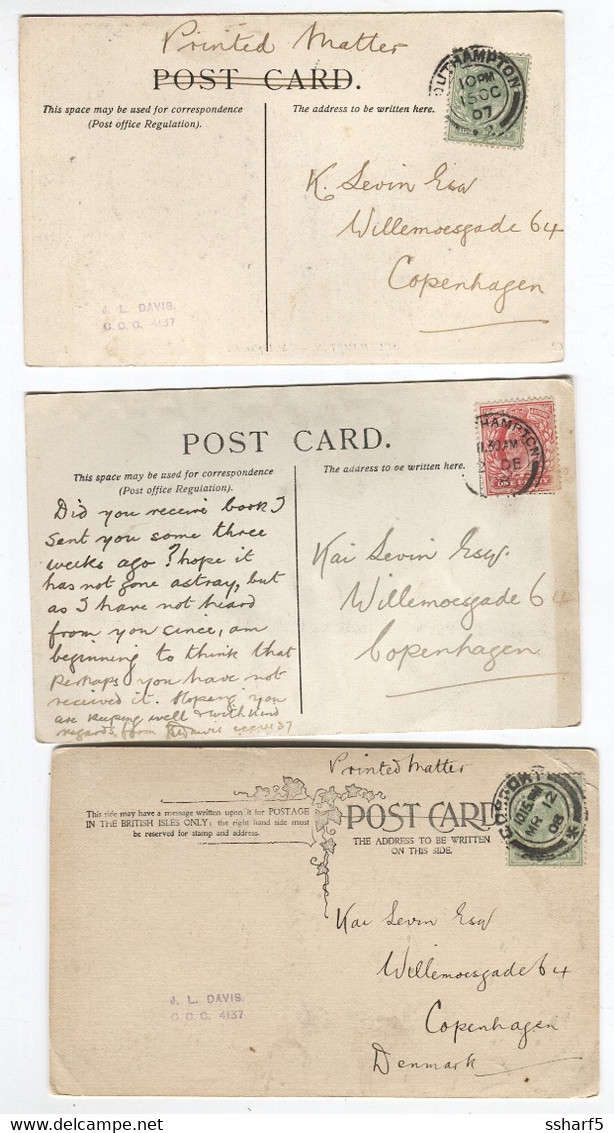 Printed Matter
POST CARD.
This space may be used for correspondence
(Post office Regulation).
The address to be written here.
OUTHAMPTON
10 PM
15 OC
07
K. Levin Esq
Willemoesgade 64
Copenhagen
J. L. DAVIS.
C.C.C. 4137
POST CARD.
This space may be used for correspondence
(Post office Regulation).
The address to be written here.
HAMPTON
.30 AM
DE
Did you receive book I
sent you some three
weeks ago? hope it
has not gone astray, but
as I have not heard
from you since, am
beginning to think that
perhaps you have not
received it. Hoping you
are keeping well & with kind
regards, from Davis
Kai Levin Esq.
Willemoesgade 64
Copenhagen
Printed Matter
This side may have a message written upon it for POSTAGE
IN THE BRITISH ISLES ONLY; the right hand side must
be reserved for stamp and address.
POST CARD
THE ADDRESS TO BE WRITTEN
ON THIS SIDE.
GOSPORT
10.15 PM
MR 12
08
Kai Levin Esq
Willemoesgade 64
Copenhagen
Denmark
J. L. DAVIS.
C.C.C. 4137
ssharf5